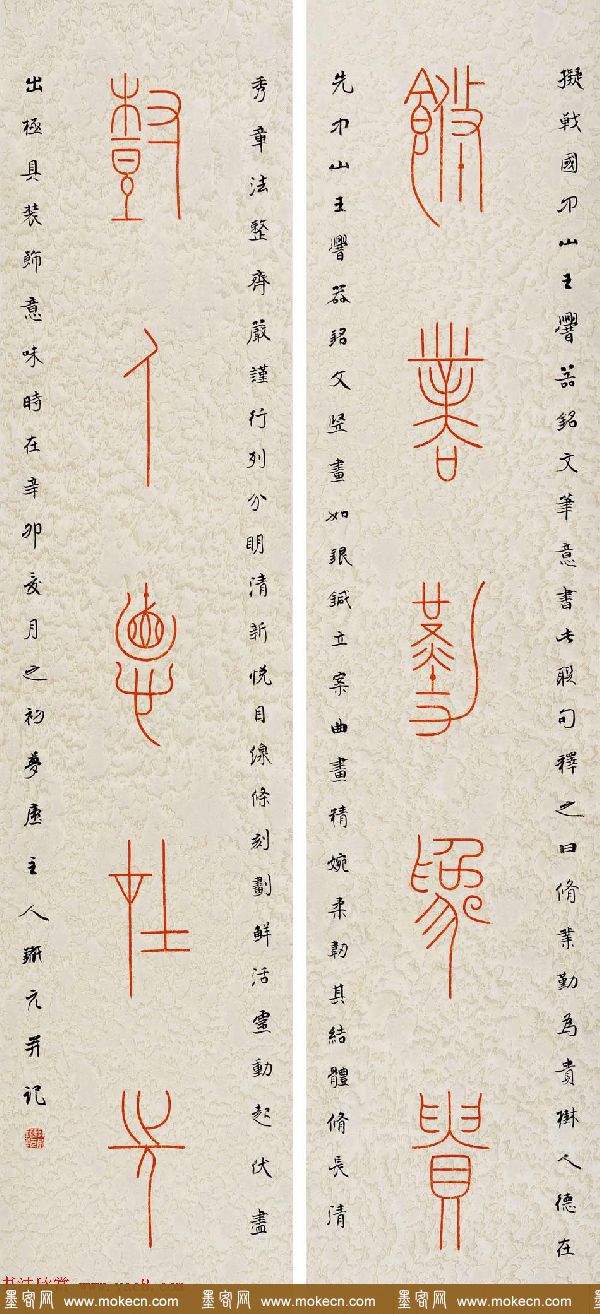 擬戰國中山王譻器銘文筆意書此聯句釋之曰脩業勤為貴樹人德在
脩業勤為貴
先中山王譻器銘文竖畫如銀鍼立案曲畫精婉柔韌其結體脩長清
秀章法整齊嚴謹行列分明清新悅目線條刻劃鮮活靈動起伏盡
樹人德在先
出極具裝飾意味時在辛卯亥月之初夢廬主人元并記
墨密网 www.mokecn.com 墨密网 www.mokecn.com 墨密网 www.mokecn.com